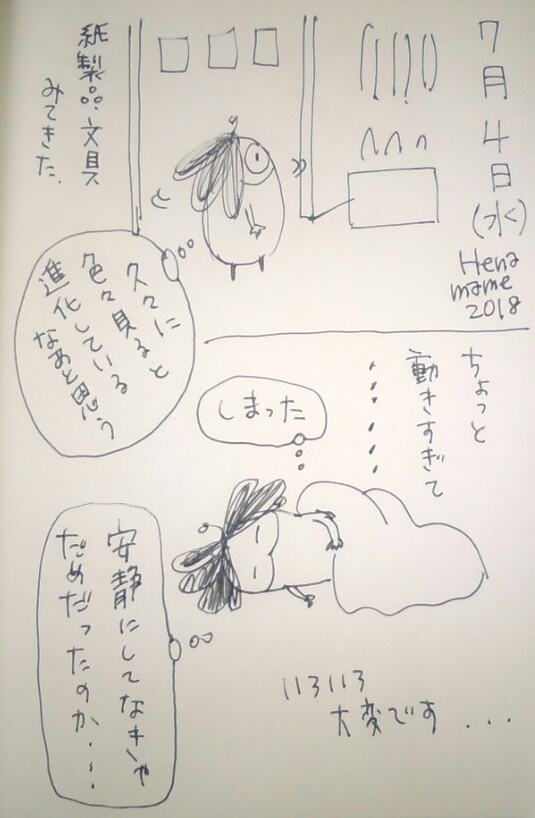 7月4日(水)
Hena
mame
2018
紙製品、文具
みてきた。
久々に
色々見ると
進化している
なあと思う
ちょっと
動きすぎて
・・・・・・
しまった
安静にしてなきゃ
だめだったのか・・・
いろいろ
大変です...